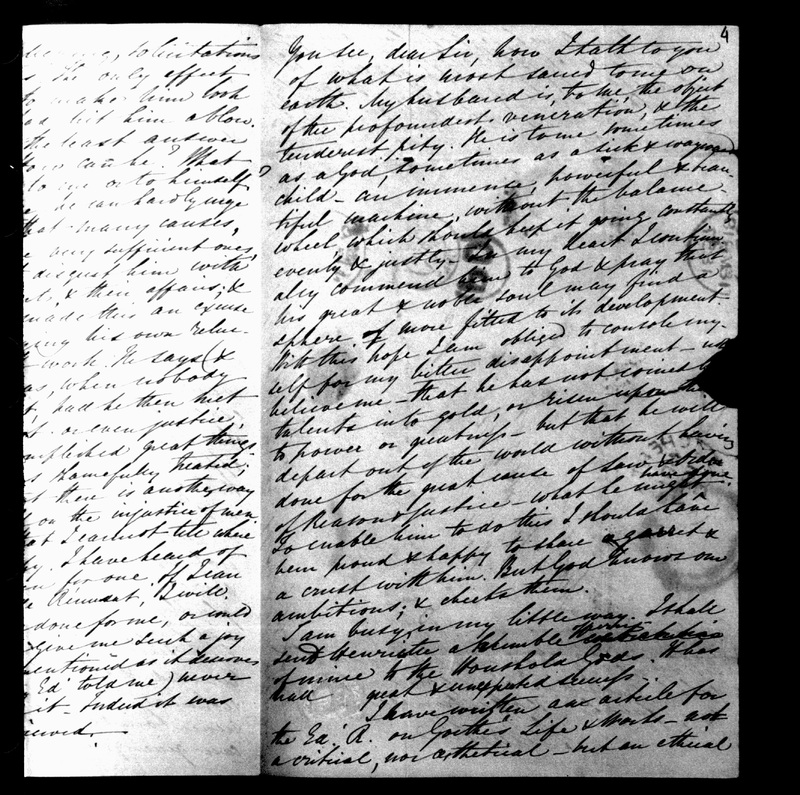 solicitations
The only effect
to make him look
had hit him a blow.
the least answer
How can he? What
to me or to himself?
he can hardly urge
that many causes,
any sufficient ones,
disgust him with
& their affairs; &
made this an excuse
his own reluc-
work. He says (&
as, when nobody
had he then met
or even justice,
accomplished great things.
shamefully treated;
there is another way
on the injustice of men
that I cannot tell where
I have heard of
for one. If Jean
Remusat, I will
done for me, or would
give me such a joy
mentioned as it deserves
Ed. told me) never
it. Indeed it was
4
You see, dear Sir, how I talk to you
of what is most sacred to me on
earth. My husband is, to me the object
of the profoundest veneration, & the
tenderest pity. He is to me sometimes
as a God, sometimes as a sick & wayward
child – an immense, powerful & beau-
tiful machine, without the balance-
wheel which should keep it going constantly
evenly & justly – In my heart I continu-
ally commend him to God & pray that
his great & noble soul may find a
sphere of more fitted to its development.
With this hope I am obliged to console my-
self for my bitter disappointment – not
believe me – that he has not coined his
talents into gold, or risen upon them
to power or greatness – but that he will
depart out of the world without having
done for the great cause of Law & Order
of Reason & Justice what he might have done
To enable him to do this I should have
been proud & happy to share a garret &
a crust with him. But God knows our
ambitions; & checks them.
I am busy, in my little way. I shall
send herewith a humble
of mine to the Household Gods. It has
had great & unexpected success.
I have written an article for
the Ed. R. on Goethe's Life & Works – not
a critical, nor aesthetical – but an ethical